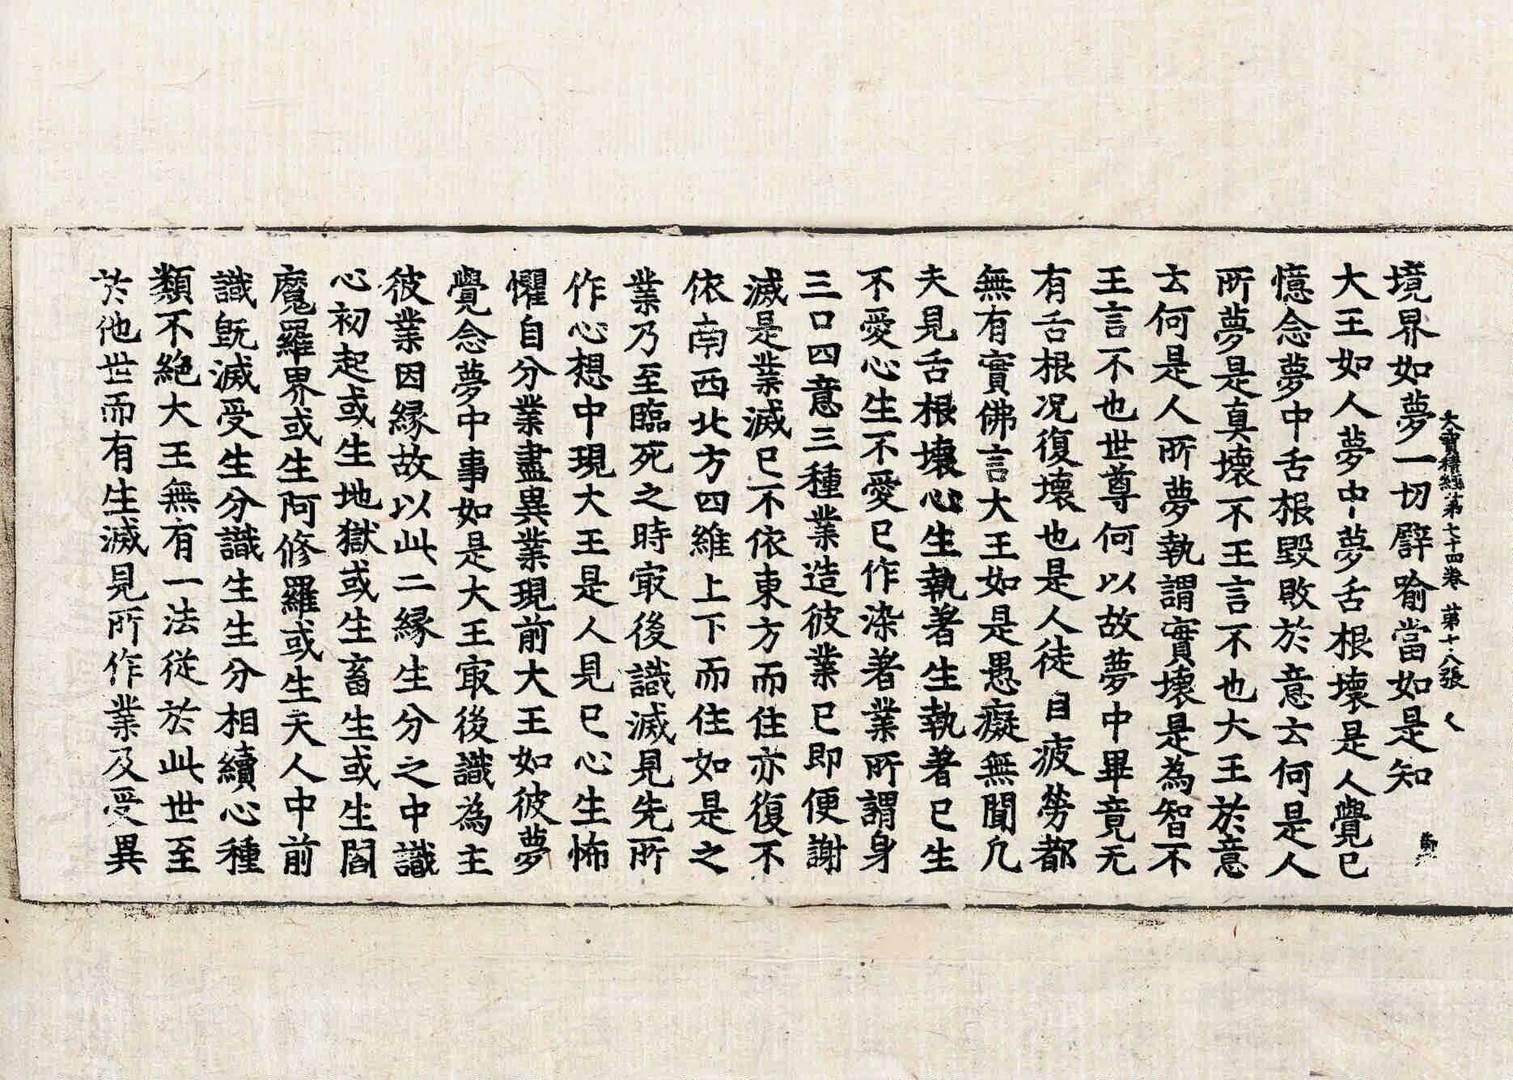 大寶積經第七十四卷 第十八張 乀
境界如夢一切譬喻當如是知
大王如人夢中夢舌根壞是人覺已
憶念夢中舌根毀敗於意云何是人
所夢是真壞不王言不也大王於意
云何是人所夢執謂實壞是為智不
王言不也世尊何以故夢中畢竟无
有舌根况復壞也是人徒自疲勞都
無有實佛言大王如是愚癡無聞凡
夫見舌根壞心生執著生執著已生
不愛心生不愛已作染著業所謂身
三口四意三種業造彼業已即便謝
滅是業滅已不依東方而住亦復不
依南西北方四維上下而住如是之
業乃至臨死之時㝡後識滅見先所
作心想中現大王是人見已心生怖
懼自分業盡異業現前大王如彼夢
覺念夢中事如是大王㝡後識為主
彼業因緣故以此二緣生分之中識
心初起或生地獄或生畜生或生閻
魔羅界或生阿修羅或生天人中前
識旣滅受生分識生生分相續心種
類不絕大王無有一法從於此世至
於他世而有生滅見所作業及受異